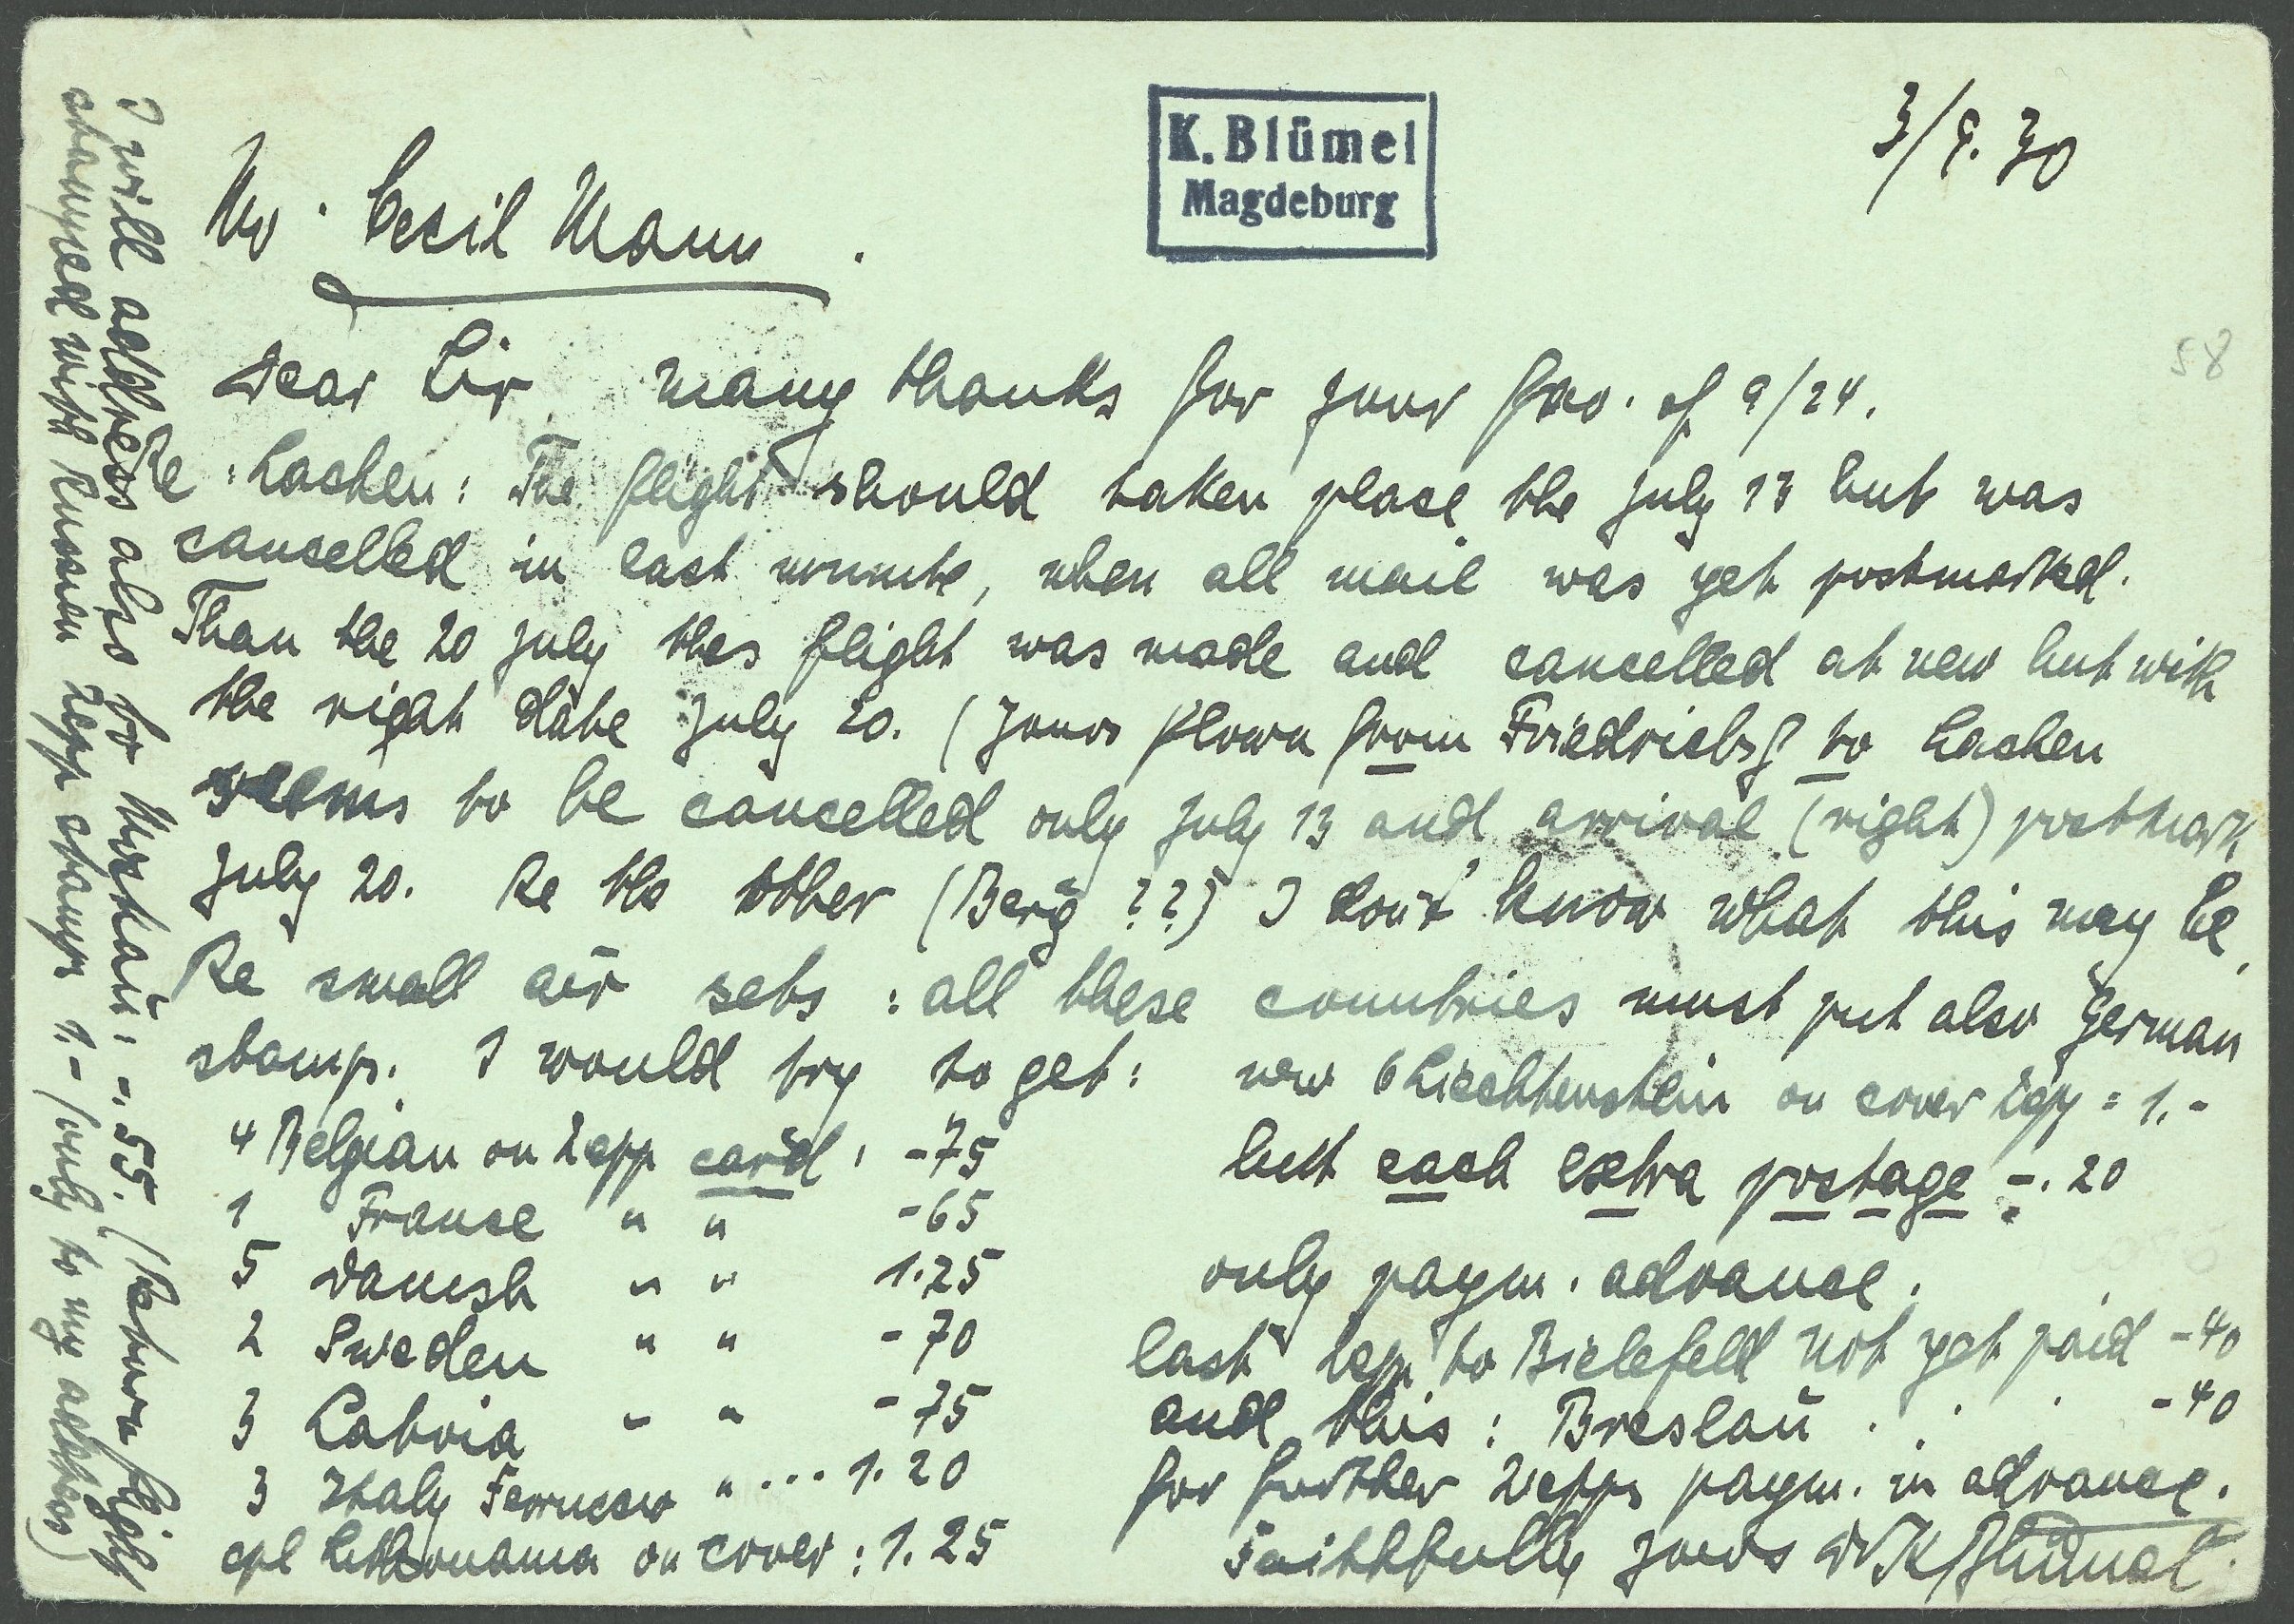 K. Blümel
Magdeburg
3/9. 30
Mr. Cecil Mann.
Dear Sir many thanks for your fav. of 9/24.
Re: Lachen: The flight should taken place the july 13 but was
cancelled in last minute, when all mail was yet postmarked.
Than the 20 july thes flight was made and cancelled at new but with
the right date july 20. (yours flown from Friedrichshf to Lachen
seems to be cancelled only july 13 and arrival (right) postmark
july 20. Re the other (Berg ??) I don't know what this may be,
Re small air sets: all these countries must put also german
stamps. I would try to get: new 6 Liechtenstein on cover Zepp = 1.-
4 Belgian on Zepp card: -75
but each extra postage -.20
1 France " " -65
5 Danish " " 1.25
only paym. advance.
2 Sweden " " -70
last Zepp to Bielefeld not yet paid -40
3 Latvia " " -75
and this: Breslau . . . -40
3 Italy Ferrucco " ... 1.20
for further Zepps paym. in advance.
cpl Lithonania on cover: 1.25
Faithfully yours Dr K Blümel
I will address also to Moskau: -.55. (Return flight
stamped with Russian Zepp stamps 1.- (only to my address)
58